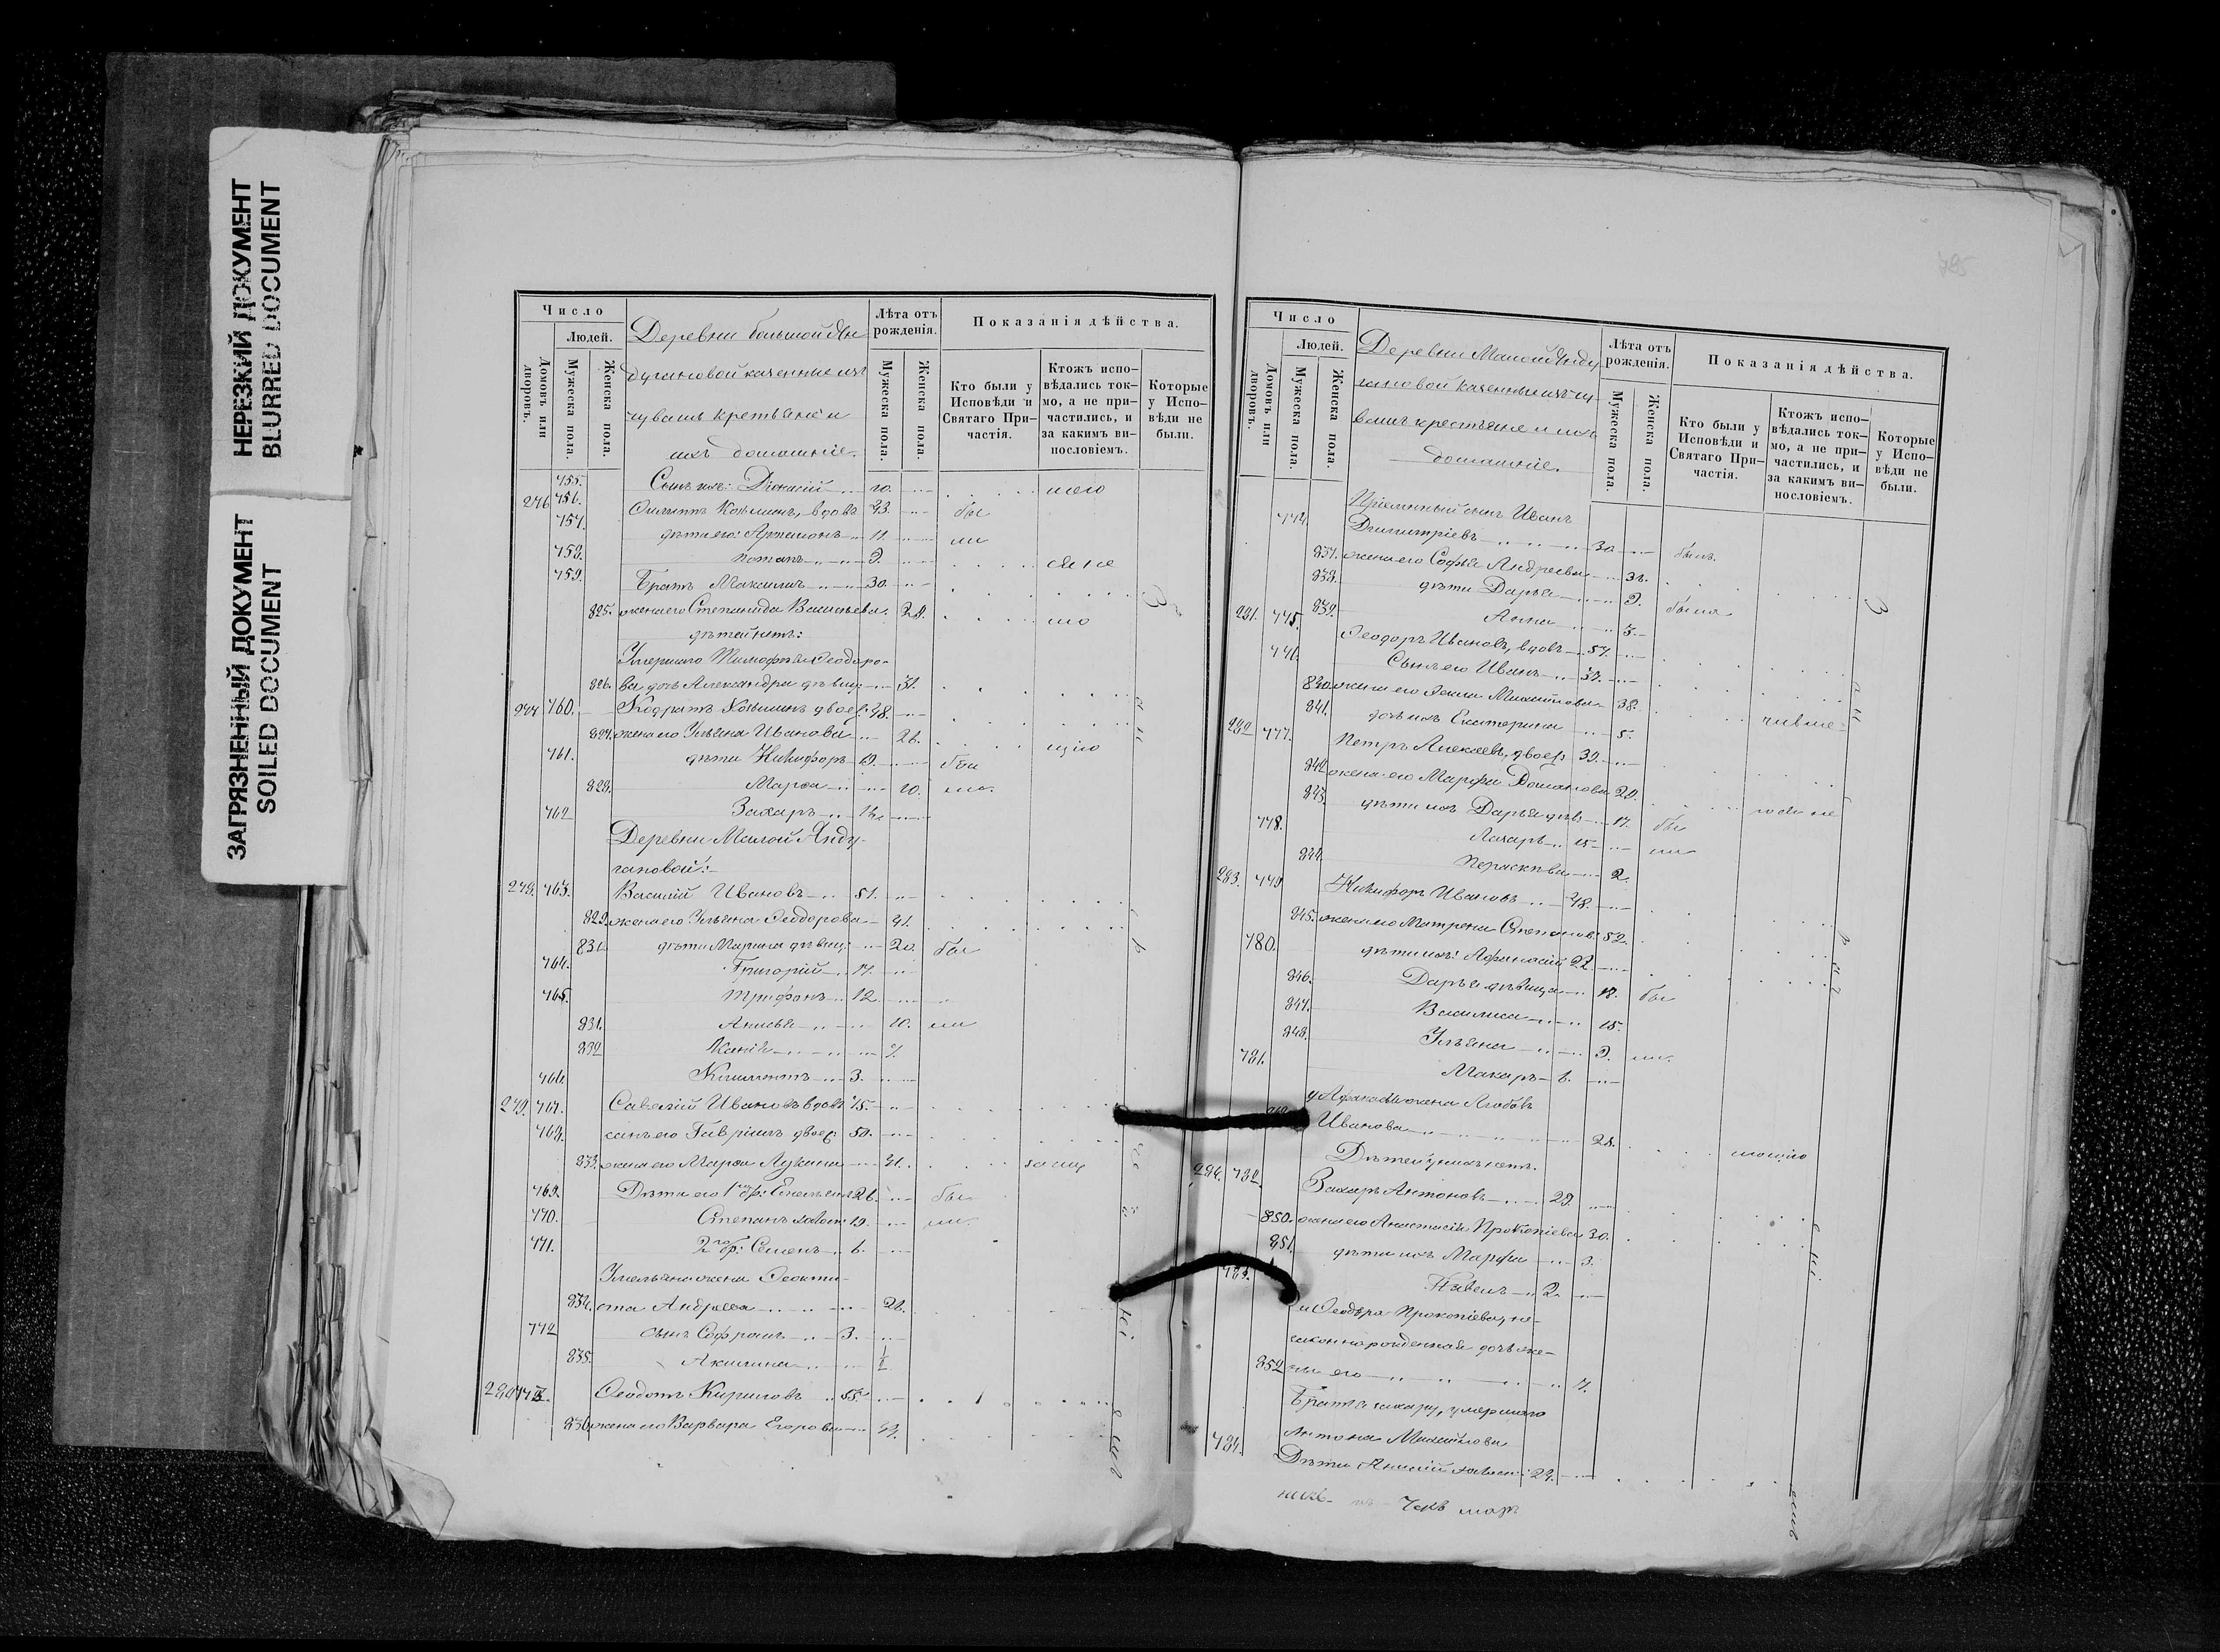 НЕРЕЗКИЙ ДОКУМЕНТ
BLURRED DOCUMENT
ЗАГРЯЗНЕННЫЙ ДОКУМЕНТ
SOILED DOCUMENT
Число
Домовъ или дворовъ.
Людей.
Мужеска пола.
Женска пола.
Деревни большой Ян
дугановой казенные изъ
чувашъ крестьяне и
ихъ домашніе.
Лѣта отъ рожденія.
Мужеска пола.
Женска пола.
Показанія дѣйства.
Кто были у Исповѣди и Святаго Причастія.
Ктожъ исповѣдались токмо, а не причастились, и за какимъ винословіемъ.
Которые у Исповѣди не были.
755. Сынъ ихъ: Діонисій 10.
276 756. Филиппъ Козьминъ, вдовъ 43. бы
757. дѣти его: Артамонъ 11. ли
758. Потапъ 9.
759. Братъ Максимъ 30.
825. жена его Степанида Васильева 28.
дѣтей нетъ:
Умершаго Тимофея Ѳеодоро-
826. ва дочь Александра дѣвиц. 31.
277 760. Кодратъ Козьминъ двоеб. 48.
827. жена его Ульяна Иванова 26.
761. дѣти Никифоръ 19. бы
828. Марѳа 10. ли.
762 Захаръ 14
Деревни Малой Янду-
гановой:
278. 763. Василій Ивановъ 51.
829. жена его Ульяна Ѳеодорова 41.
830 дѣти Марина дѣвиц: 20. бы
764. Григорій 17.
765. Трифонъ 12.
831. Анисья 10. ли
832 Ксенія 7.
766. Климентъ 3.
279. 767. Савелій Ивановъ вдовъ 75.
768. сынъ его Гавріилъ двоеб. 50.
833. жена его Марѳа Лукина 41.
769. Дѣти его 1го бр: Емельянъ 26. бы
770. Степанъ холост: 19. ли.
771. 2го бр: Семенъ 6.
Емельяна жена Ѳеокти-
834. ста Андреева 26.
772 сынъ Софронъ 3.
835. Акилина
280 773. Ѳеодотъ Кириловъ 55.
836 жена его Варвара Егорова
Число
Домовъ или дворовъ.
Людей.
Мужеска пола.
Женска пола.
Деревни Малой Янду
гановой казенные изъ чу
вашъ крестьяне и ихъ
домашніе.
Лѣта отъ рожденія.
Мужеска пола.
Женска пола.
Показанія дѣйства.
Кто были у Исповѣди и Святаго Причастія.
Ктожъ исповѣдались токмо, а не причастились, и за какимъ винословіемъ.
Которые у Исповѣди не были.
Пріемный сынъ Иванъ
774 Димитріевъ 30 былъ.
837. жена его Софья Андреева 32.
838. дѣти Дарья 9. была
839. Анна 3.
281. 775. Ѳеодоръ Ивановъ, вдовъ 57.
776. Сынъ его Иванъ 39.
840. жена его Ѳекла Михайлова 38.
841. дочь ихъ Екатерина 5.
282 777. Петръ Алексѣевъ, двоеб: 39.
842 жена его Марфа 28.
843. дѣти ихъ Дарья дѣв. 17. бы
778. Лазарь 15 ли
844. Пераскева 2.
283. 779 Никифоръ Ивановъ 48.
845. жена его Матрена Степанов: 52.
780. дѣти ихъ: Афанасій 22.
846. Дарья дѣвица 18. бы
847. Василиса 15.
848. Ульяна 9. ли.
781. Макаръ 6.
у Афанасія жена Любовь
Иванова 28.
Дѣтей у нихъ нетъ.
284. 782. Захаръ Антоновъ 29.
850. жена его Анастасія Прокопіева 30.
851. дѣти ихъ Марфа 3.
783. Павелъ 2.
и Ѳеодора Прокопіева, не-
законнорожденная дочь же-
852 ны его 7.
Братья Захару, умершаго
Антона Михайлова
784. Дѣти Анисій холост: 24.